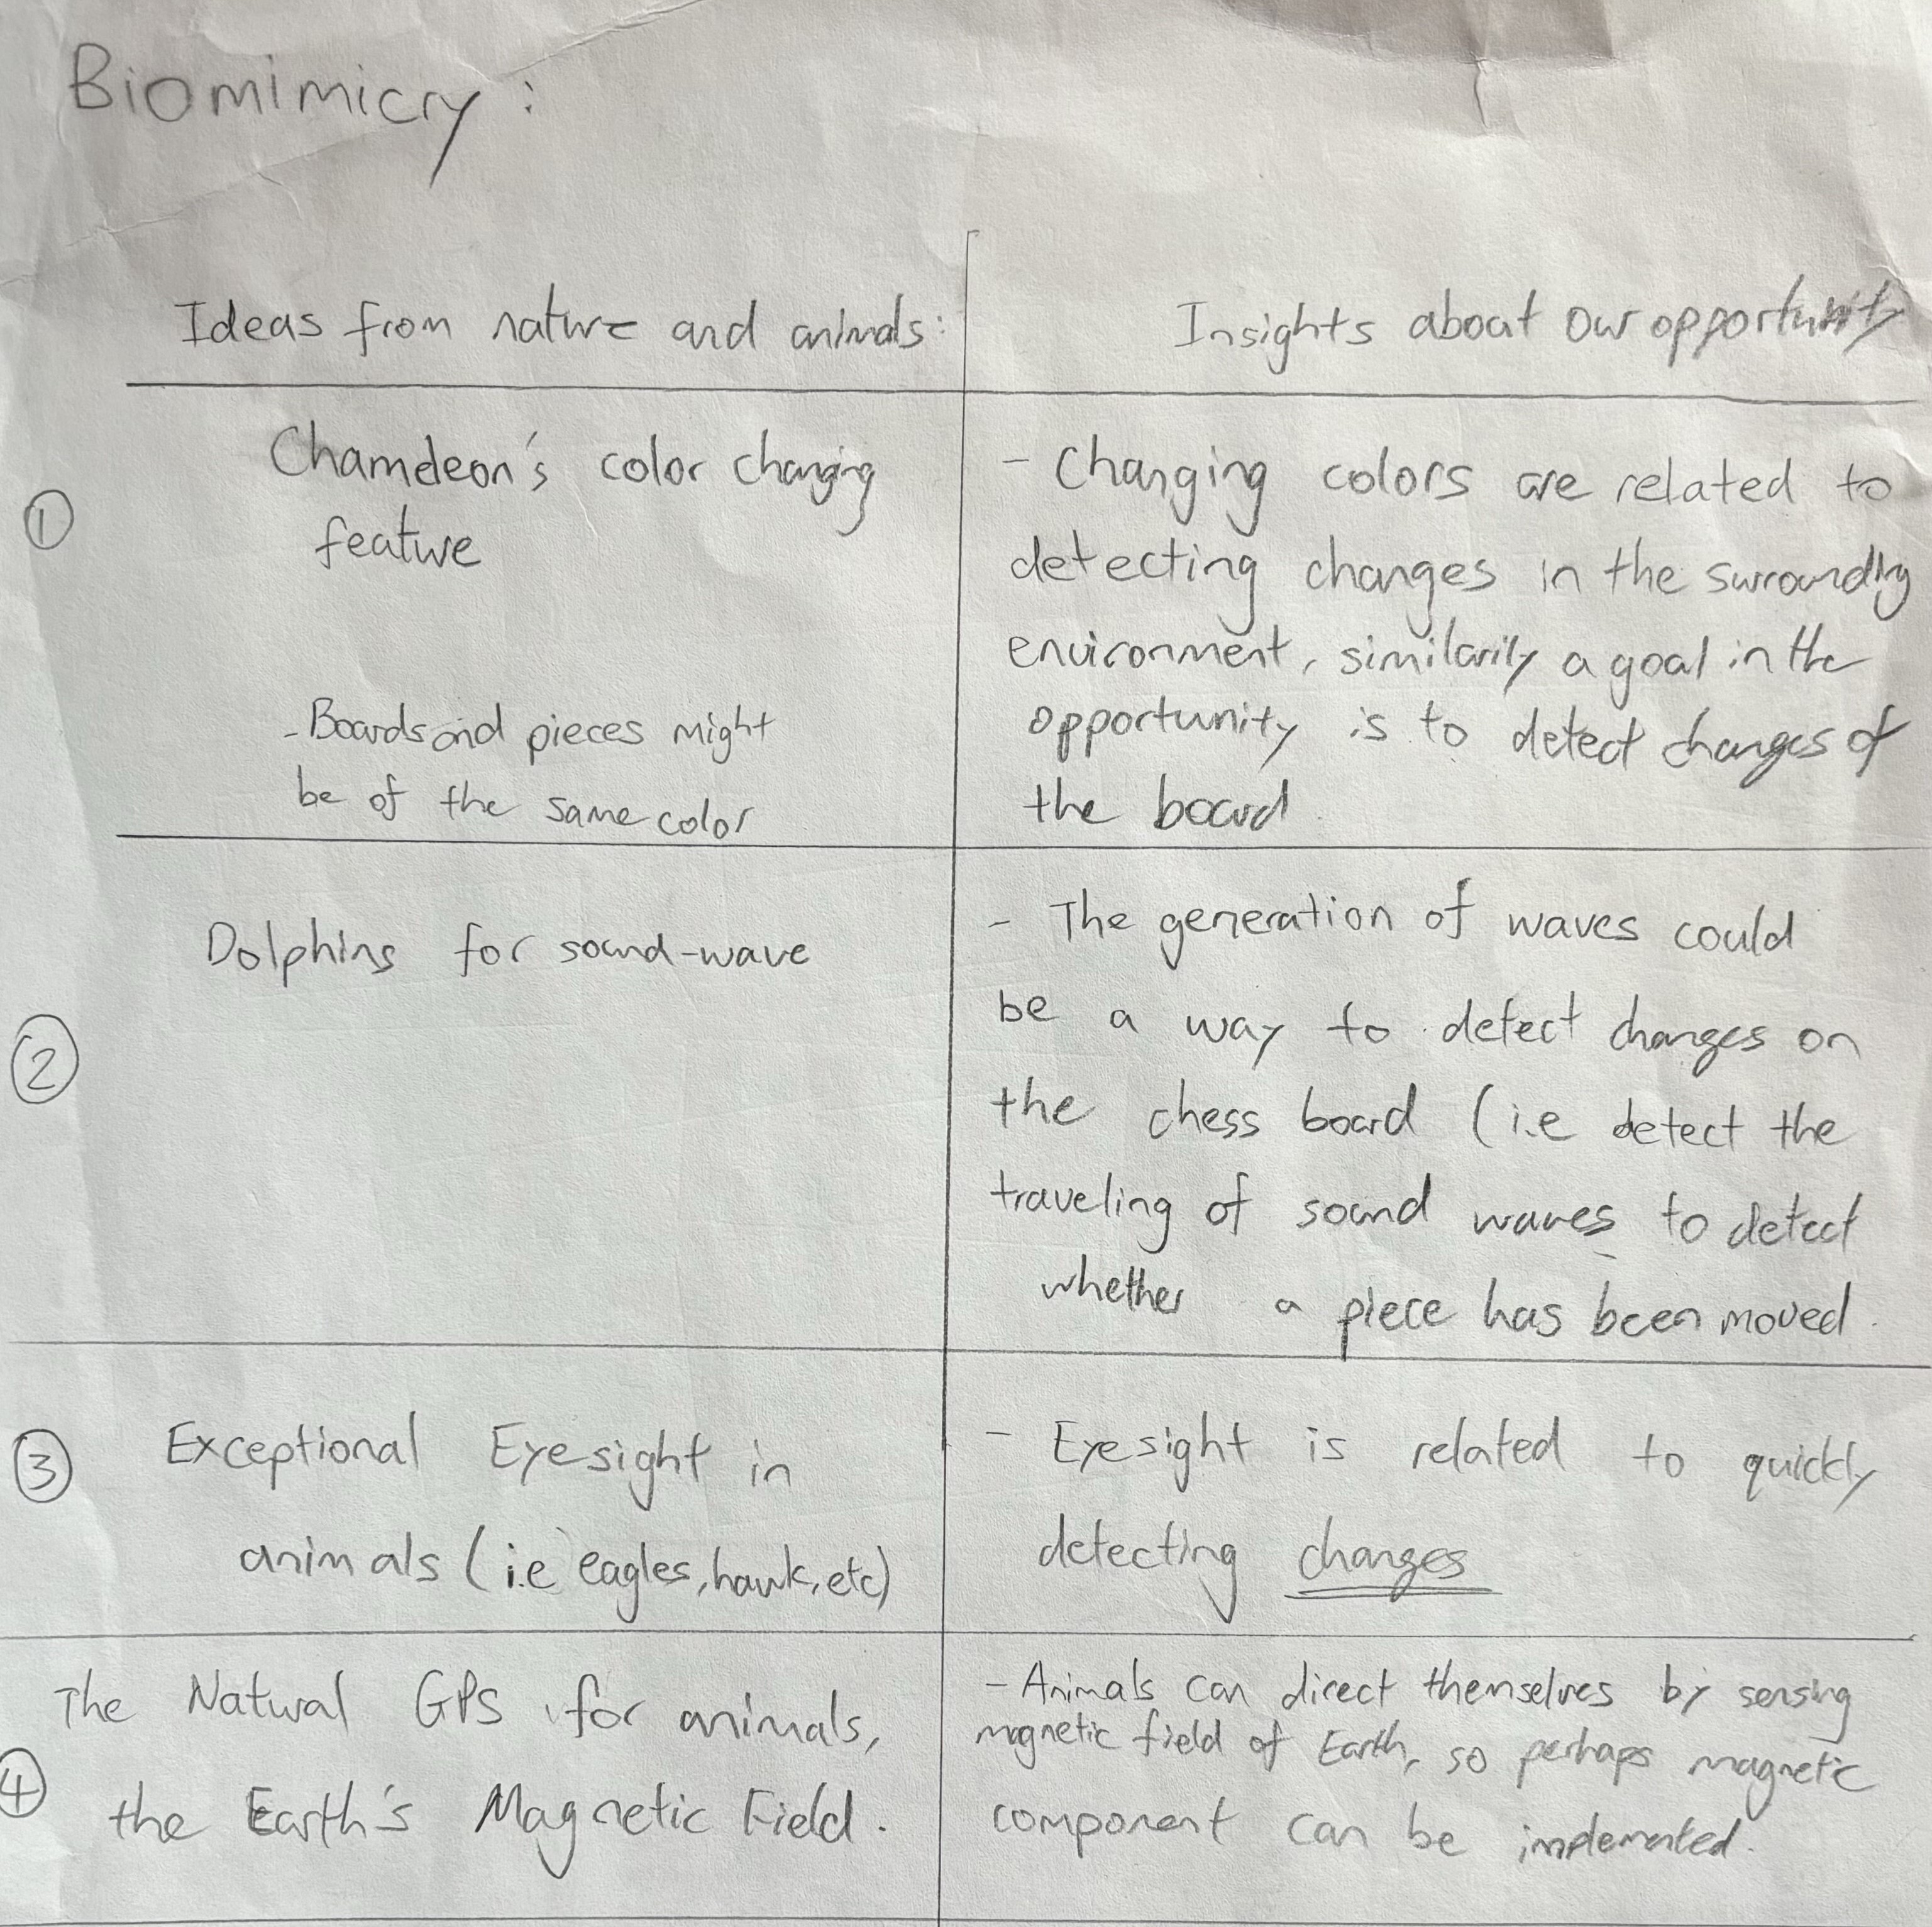 Biomimicry:
Ideas from nature and animals:
Insights about our opportunity
①
Chameleon's color changing
feature
- Boards and pieces might
be of the same color
- Changing colors are related to
detecting changes in the surrounding
environment, similarily a goal in the
opportunity is to detect changes of
the board.
②
Dolphins for sound-wave
- The generation of waves could
be a way to detect changes on
the chess board (i.e detect the
traveling of sound waves to detect
whether a piece has been moved.
③
Exceptional Eyesight in
animals (i.e eagles, hawk, etc)
- Eyesight is related to quickly
detecting changes
④
The Natural GPS for animals,
the Earth's Magnetic Field.
- Animals can direct themselves by sensing
magnetic field of Earth, so perhaps magnetic
component can be implemented.